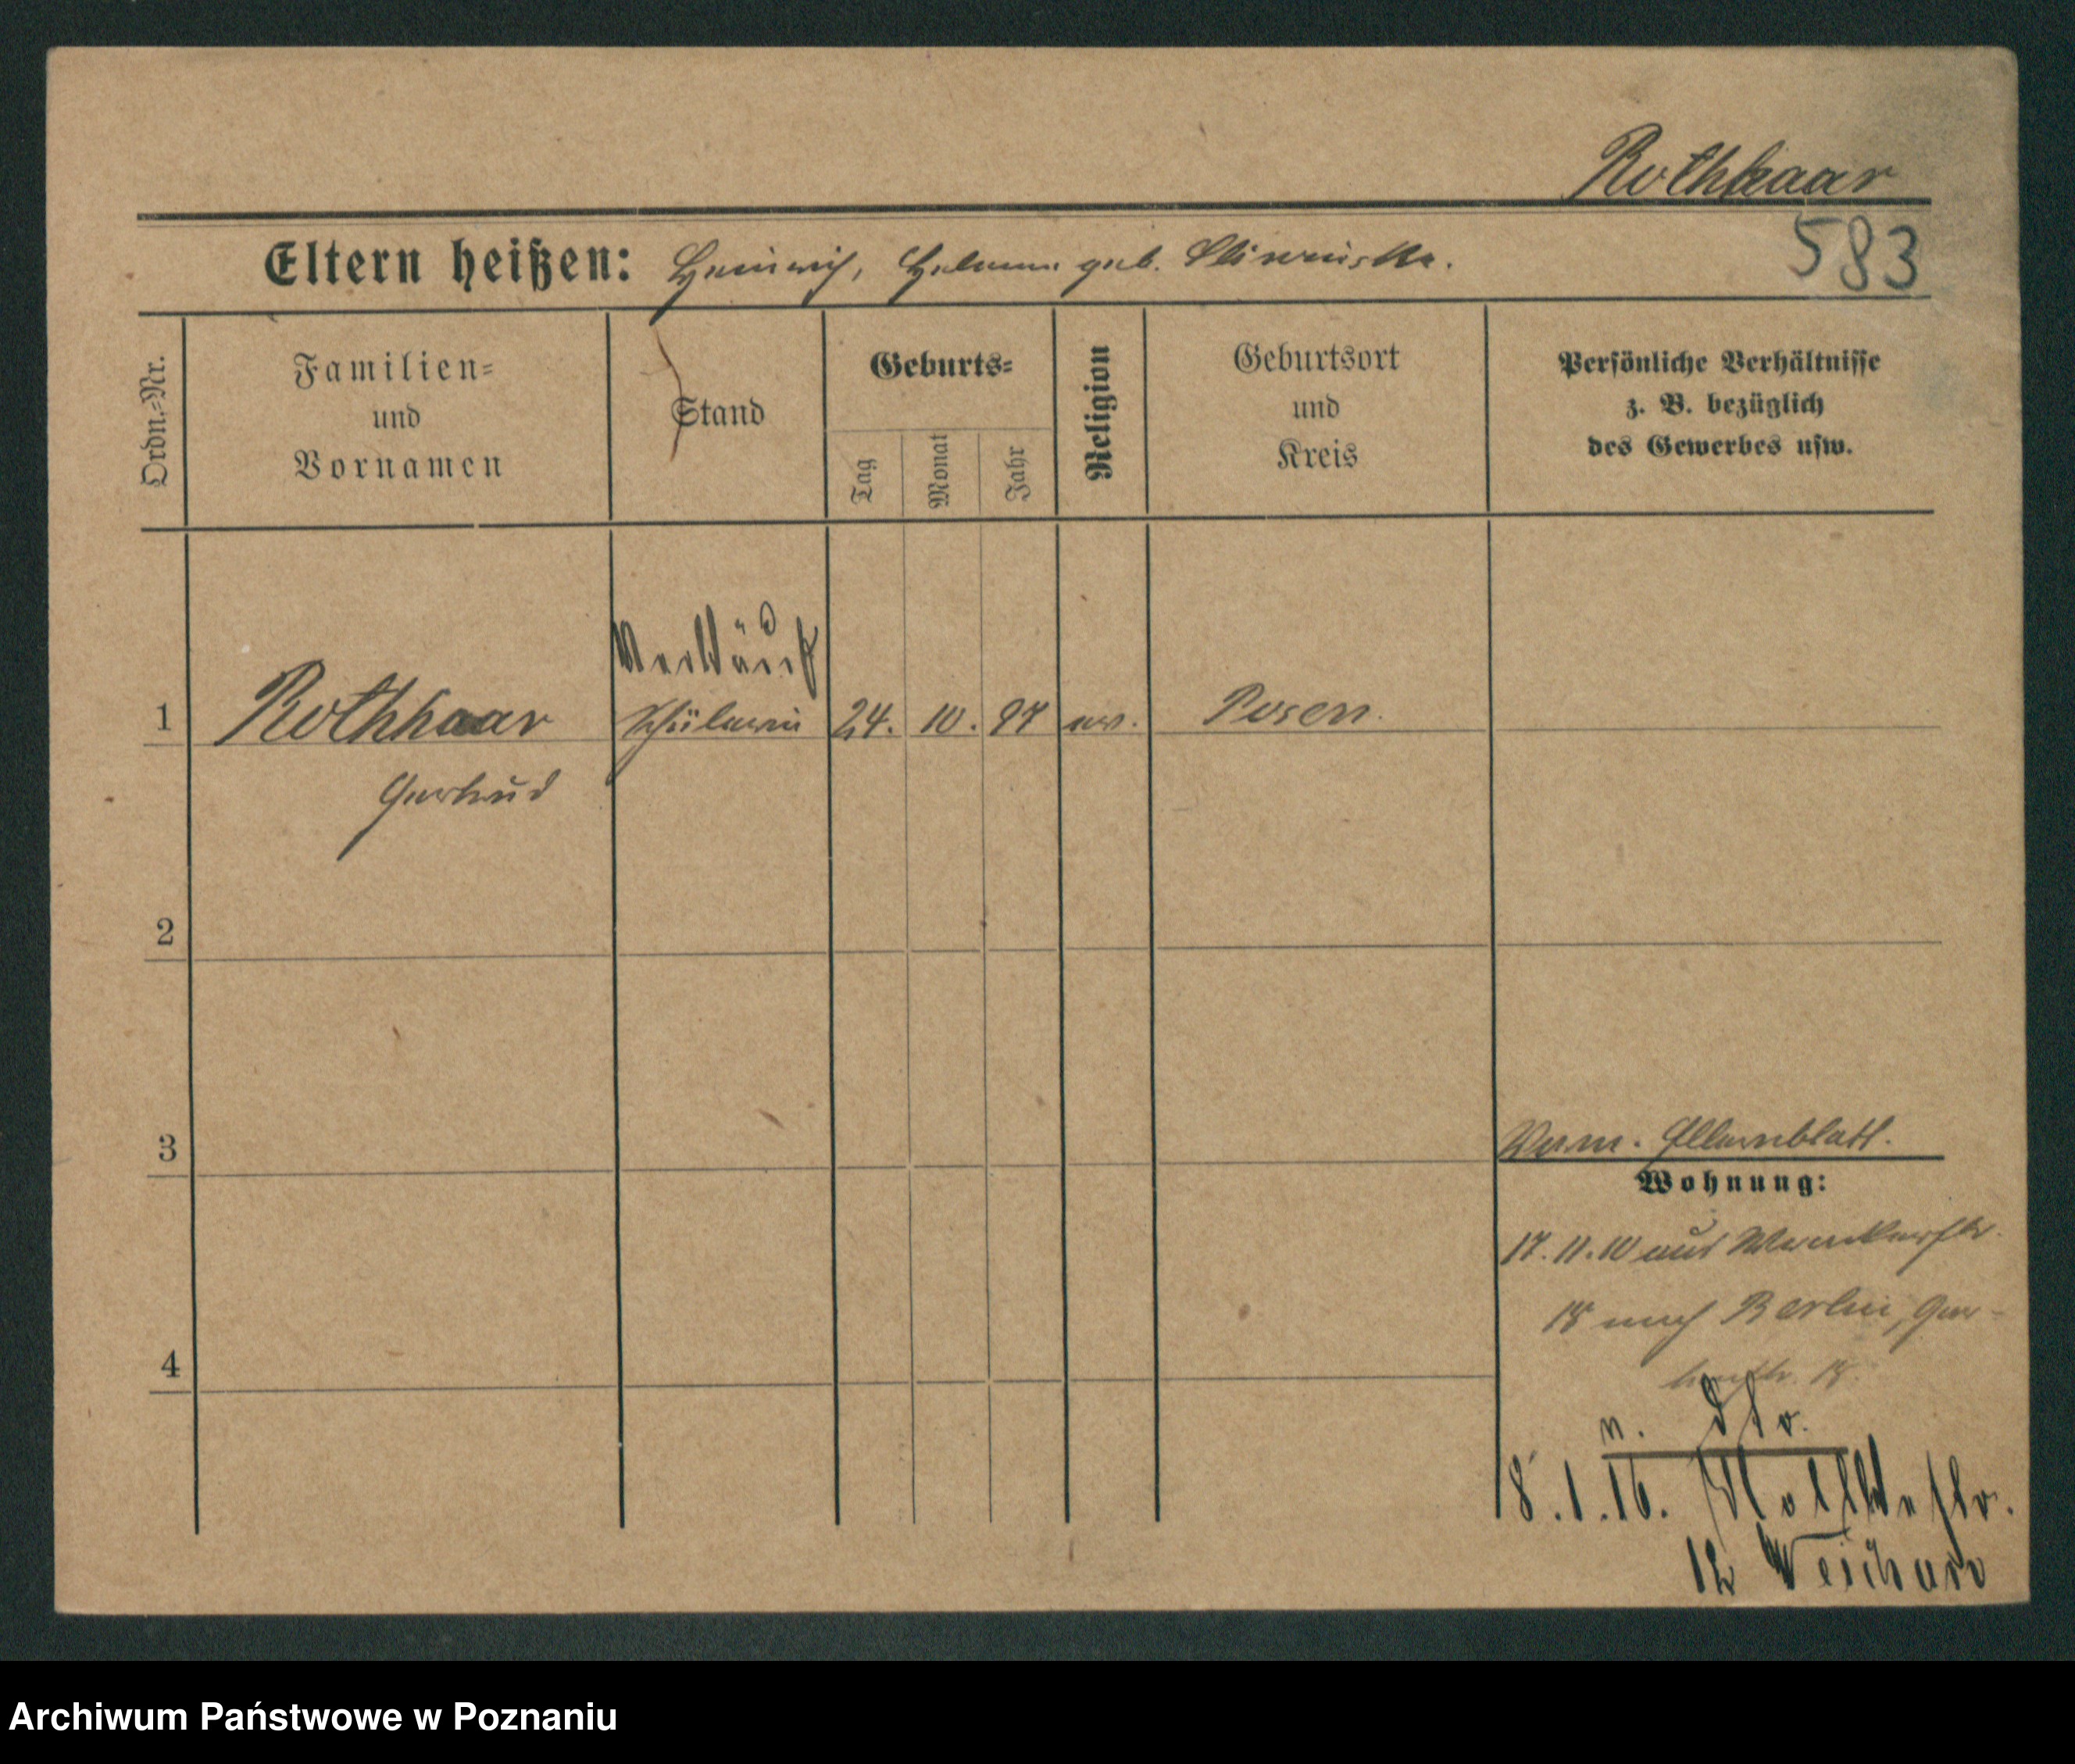 Rothhaar
583
Eltern heißen: Heinrich, Helene geb. Sliwinska.
Ordn.-Nr.
Familien-
und
Vornamen
Stand
Geburts-
Tag
Monat
Jahr
Religion
Geburtsort
und
Kreis
Persönliche Verhältnisse
z. B. bezüglich
des Gewerbes usw.
Verkäuf
1 Rothhaar Schülerin 24. 10. 97 ev. Posen.
Gertrud
2
3
Verm. Elternblatt.
Wohnung:
17.11.10 aus
18 nach Berlin, Ger-
18.
4
n. dtv.
8.1.16. Moltkestr.
12
Archiwum Państwowe w Poznaniu